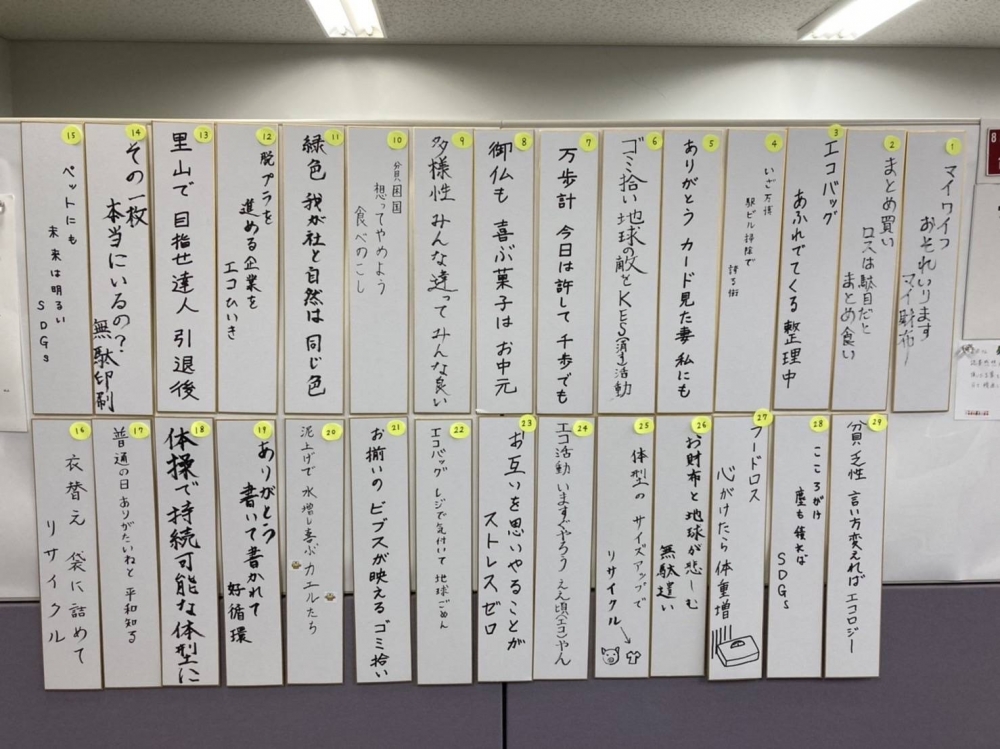 1
マイワイフ
おそれいります
マイ財布ー
2
まとめ買い
ロスは駄目だと
まとめ食い
3
エコバッグ
あふれでてくる 整理中
4
いざ万博
駅ビル掃除で
誇る街
5
ありがとう カード見た妻 私にも
6
ゴミ拾い 地球の敵を KES(消す)活動
7
万歩計 今日は許して 千歩でも
8
御仏も 喜ぶ菓子は お中元
9
多様性 みんな違って みんな良い
10
貧困国
想ってやめよう
食べのこし
11
緑色 我が社と自然は 同じ色
12
脱プラを
進める企業を
エコひいき
13
里山で 目指せ達人 引退後
14
その一枚
本当にいるの?
無駄印刷
15
ペットにも
未来は明るい
SDGs
16
衣替え 袋に詰めて
リサイクル
17
普通の日 ありがたいねと 平和知る
18
体操で持続可能な体型に
19
ありがとう
書いて書かれて
好循環
20
泥上げで 水増し喜ぶ カエルたち
21
お揃いの ビブスが映える ゴミ拾い
22
エコバッグ レジで気付いて 地球ごめん
23
お互いを思いやることが
ストレスゼロ
24
エコ活動 いますぐやろう ええ頃(エコ)やん
25
体型の サイズアップで
リサイクル
26
お財布と 地球が悲しむ
無駄遣い
27
フードロス
心がけたら 体重増
28
こころがけ
塵も積れば
SDGs
29
貧乏性 言い方変えれば エコロジー